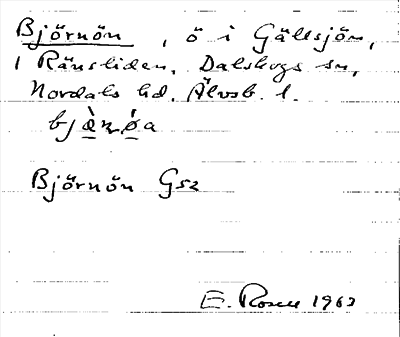 Björnön, ö i Gällsjön,
i Ränsliden, Dalskogs sn,
Nordals hd. Älvsb. l.
bjὰ̠rnǿ̠a
Björnön Gsz
E. Rosen 1963